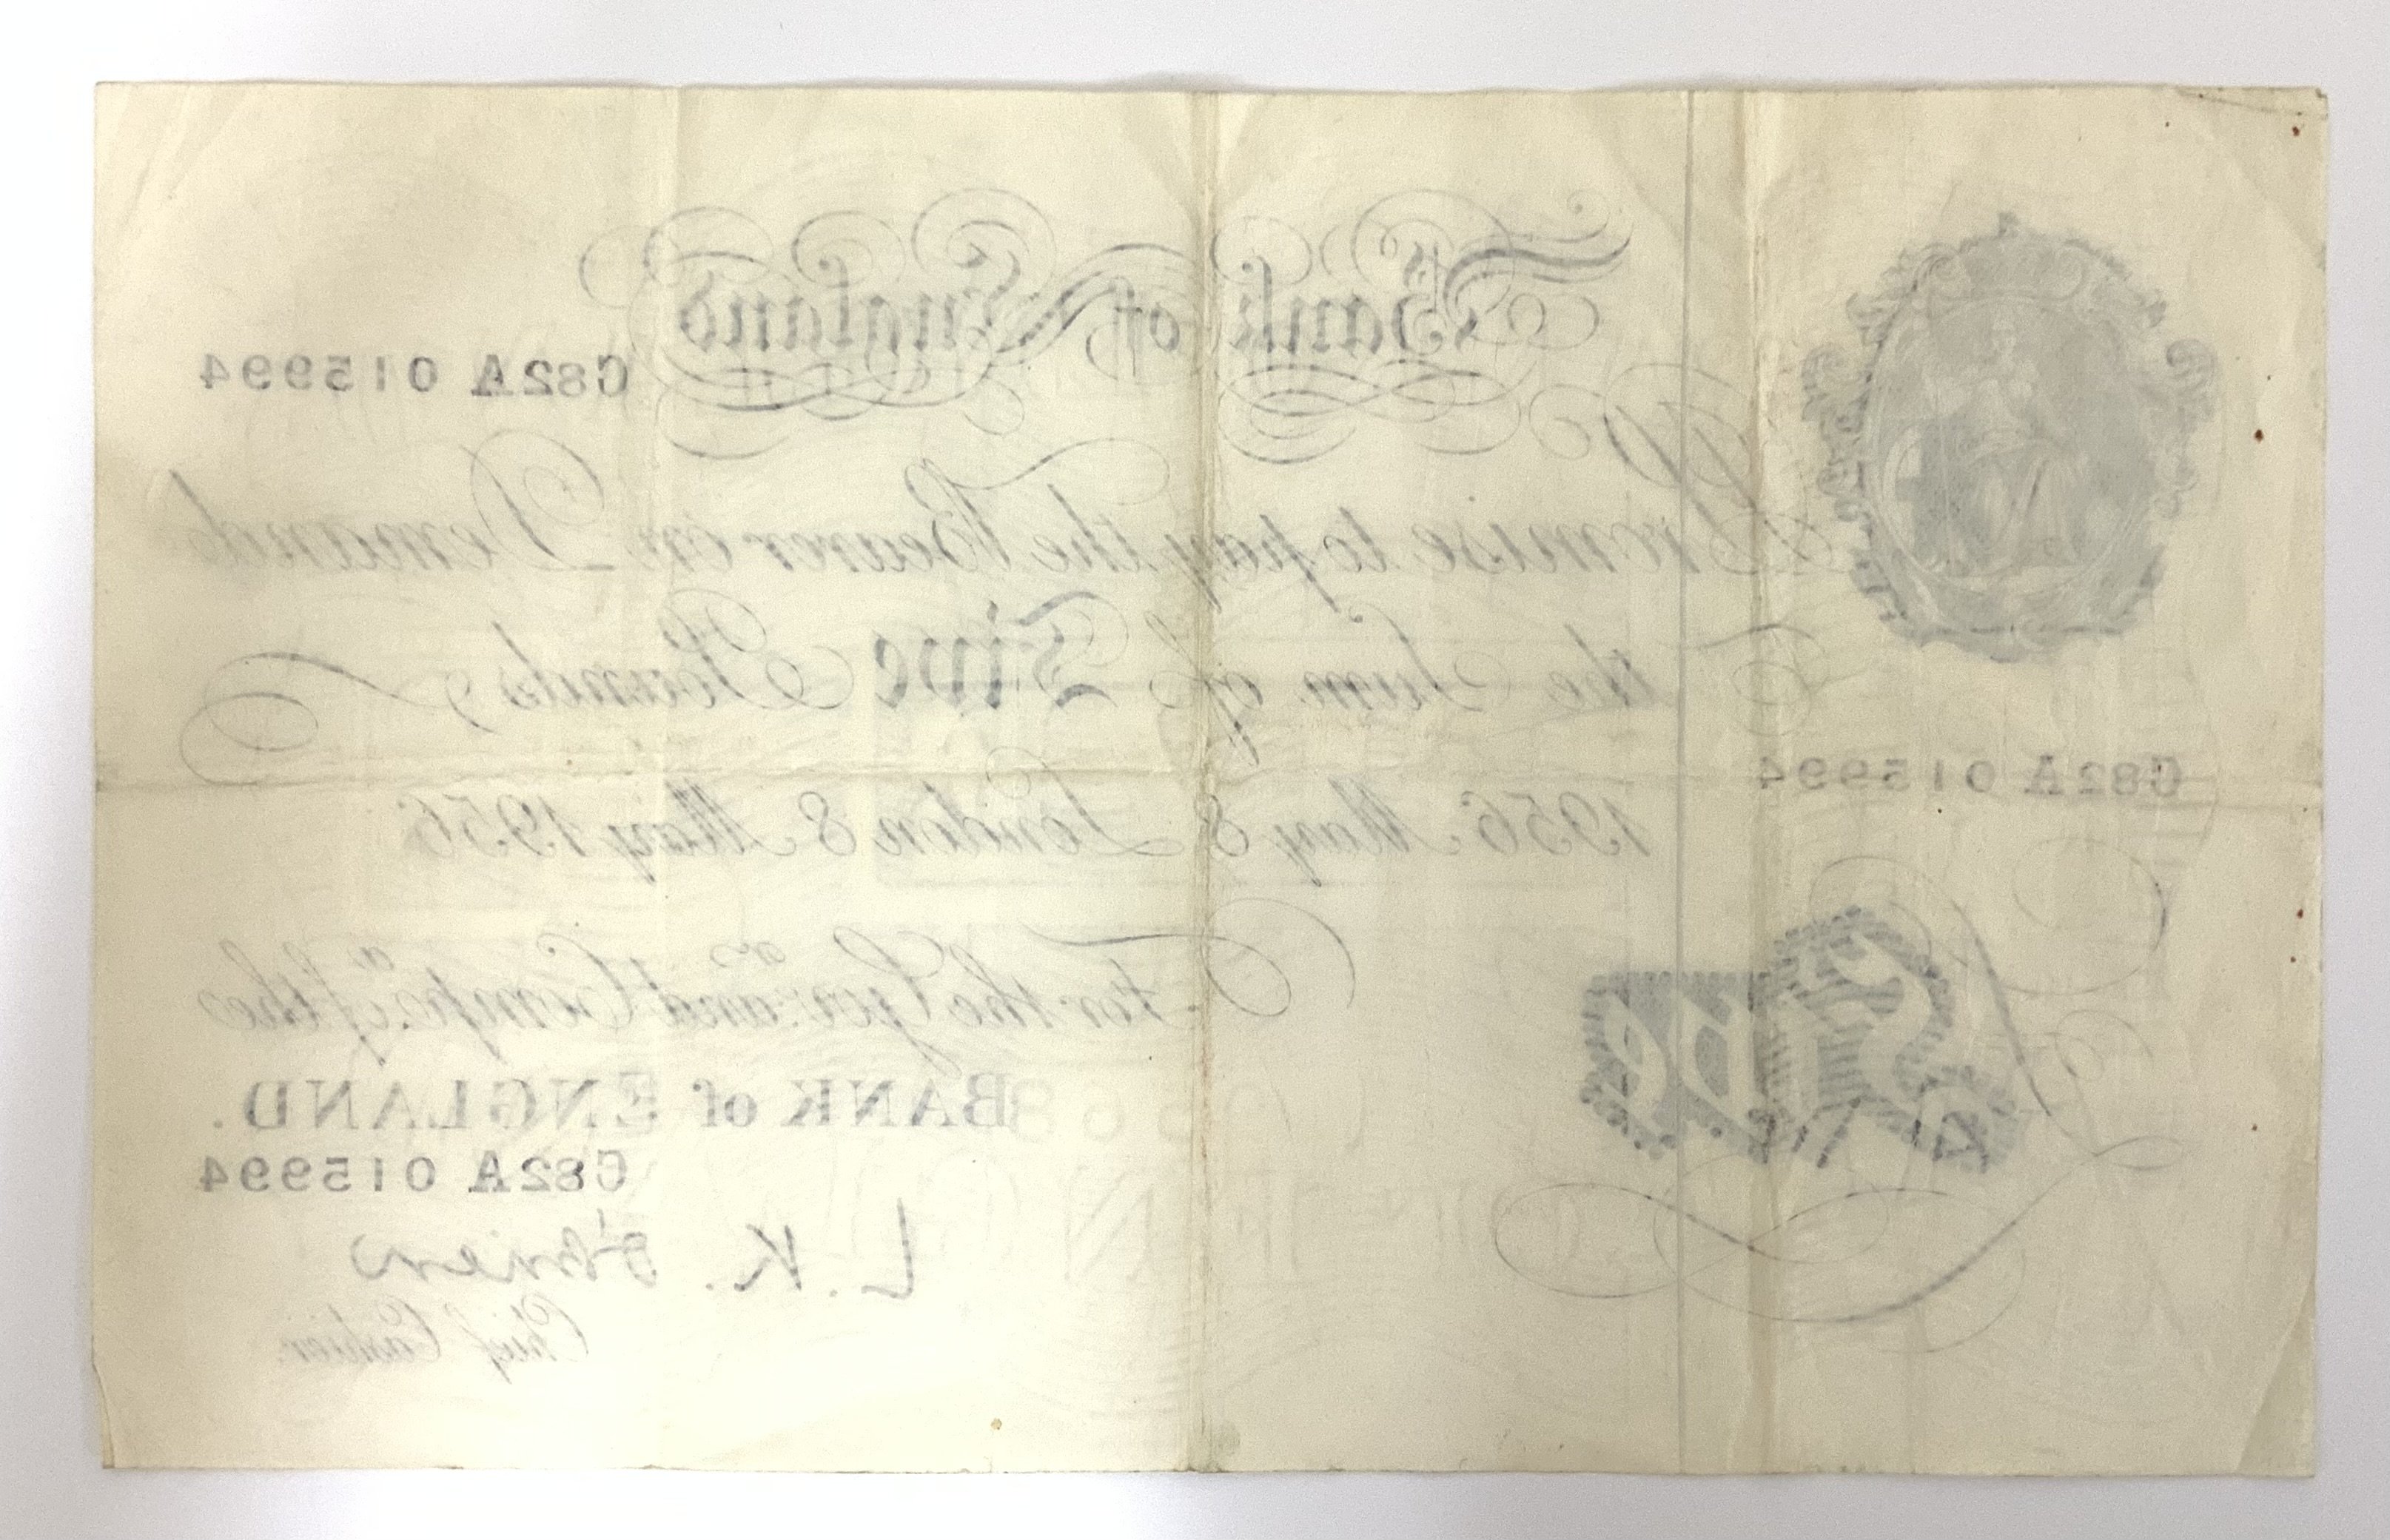 Bank of England
C82A 015994
I Promise to pay the Bearer on Demand
the Sum of Five Pounds
C82A 015994
1956 May 8 London 8 May 1956
For the Govr. and Compa. of the
BANK of ENGLAND.
Five
C82A 015994
L. K. O'Brien
Chief Cashier.